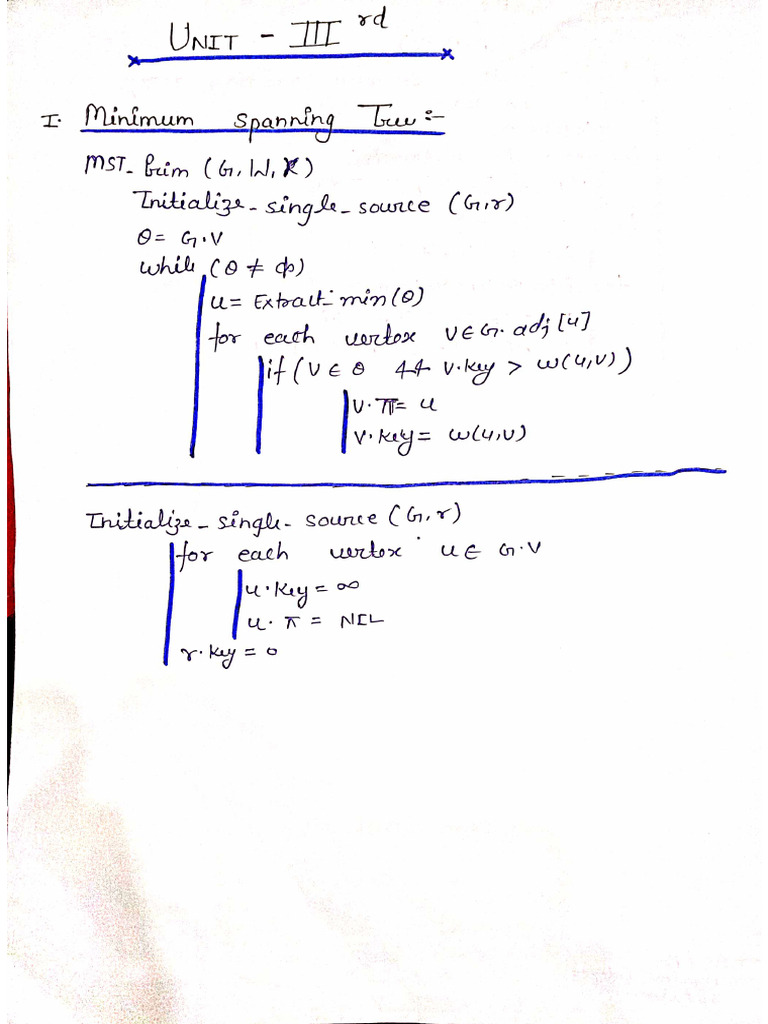 UNIT - III rd
I. Minimum spanning Tree :-
MST- Prim (G, W, r)
Initialize- single- source (G,r)
Q = G.V
while (Q ≠ φ)
u = Extract-min(Q)
for each vertex v ∈ G. adj [u]
if (v ∈ Q && v.key > w(u,v))
v.π = u
v.key = w(u,v)
Initialize- single- source (G,r)
for each vertex u ∈ G.V
u.key = ∞
u.π = NIL
r.key = 0